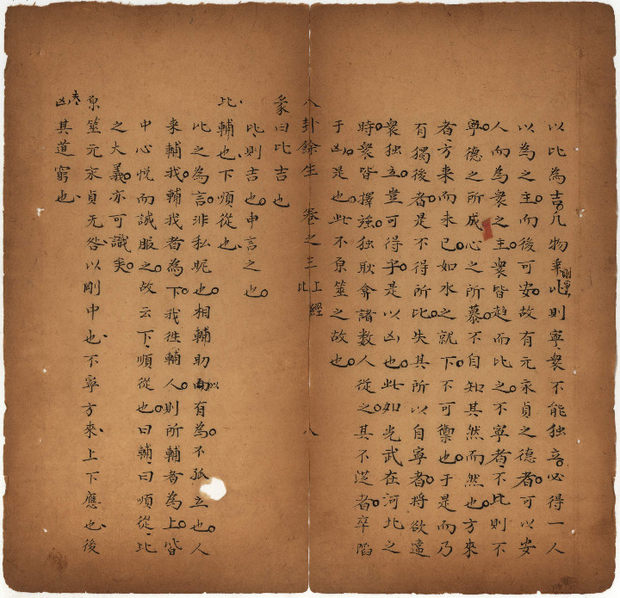 以比為吉凡物比則寧衆不能独立必得一人
以為之主而後可安故有元永貞之德者可以安
人而為衆之主衆皆趋而比之不寧者不比則不
寧德之所成心之所慕不自知其然而然也方來
者方来而未已如水之就下不可禦也于是而乃
有獨後者是不得所比失其所以自寧者将欲違
衆独立豈可得乎是以凶也此如光武在河北之
時衆皆擇強独耿弇諸数人從之其不送者卒陷
于凶是也此不原筮之故也
八卦餘生 卷之三 上經 比 八
彖曰比吉也
比則吉也申言之也
比輔也下順從也
比之為言非私昵也相輔助以有為不孤立也人
来輔我輔我者為下我徃輔人則所輔者為上皆
中心悅而誠服之故云下順從也曰輔曰順從比
之大義亦可識矣
原筮元永貞无咎以剛中也不寧方來上下應也後
夫凶其道窮也